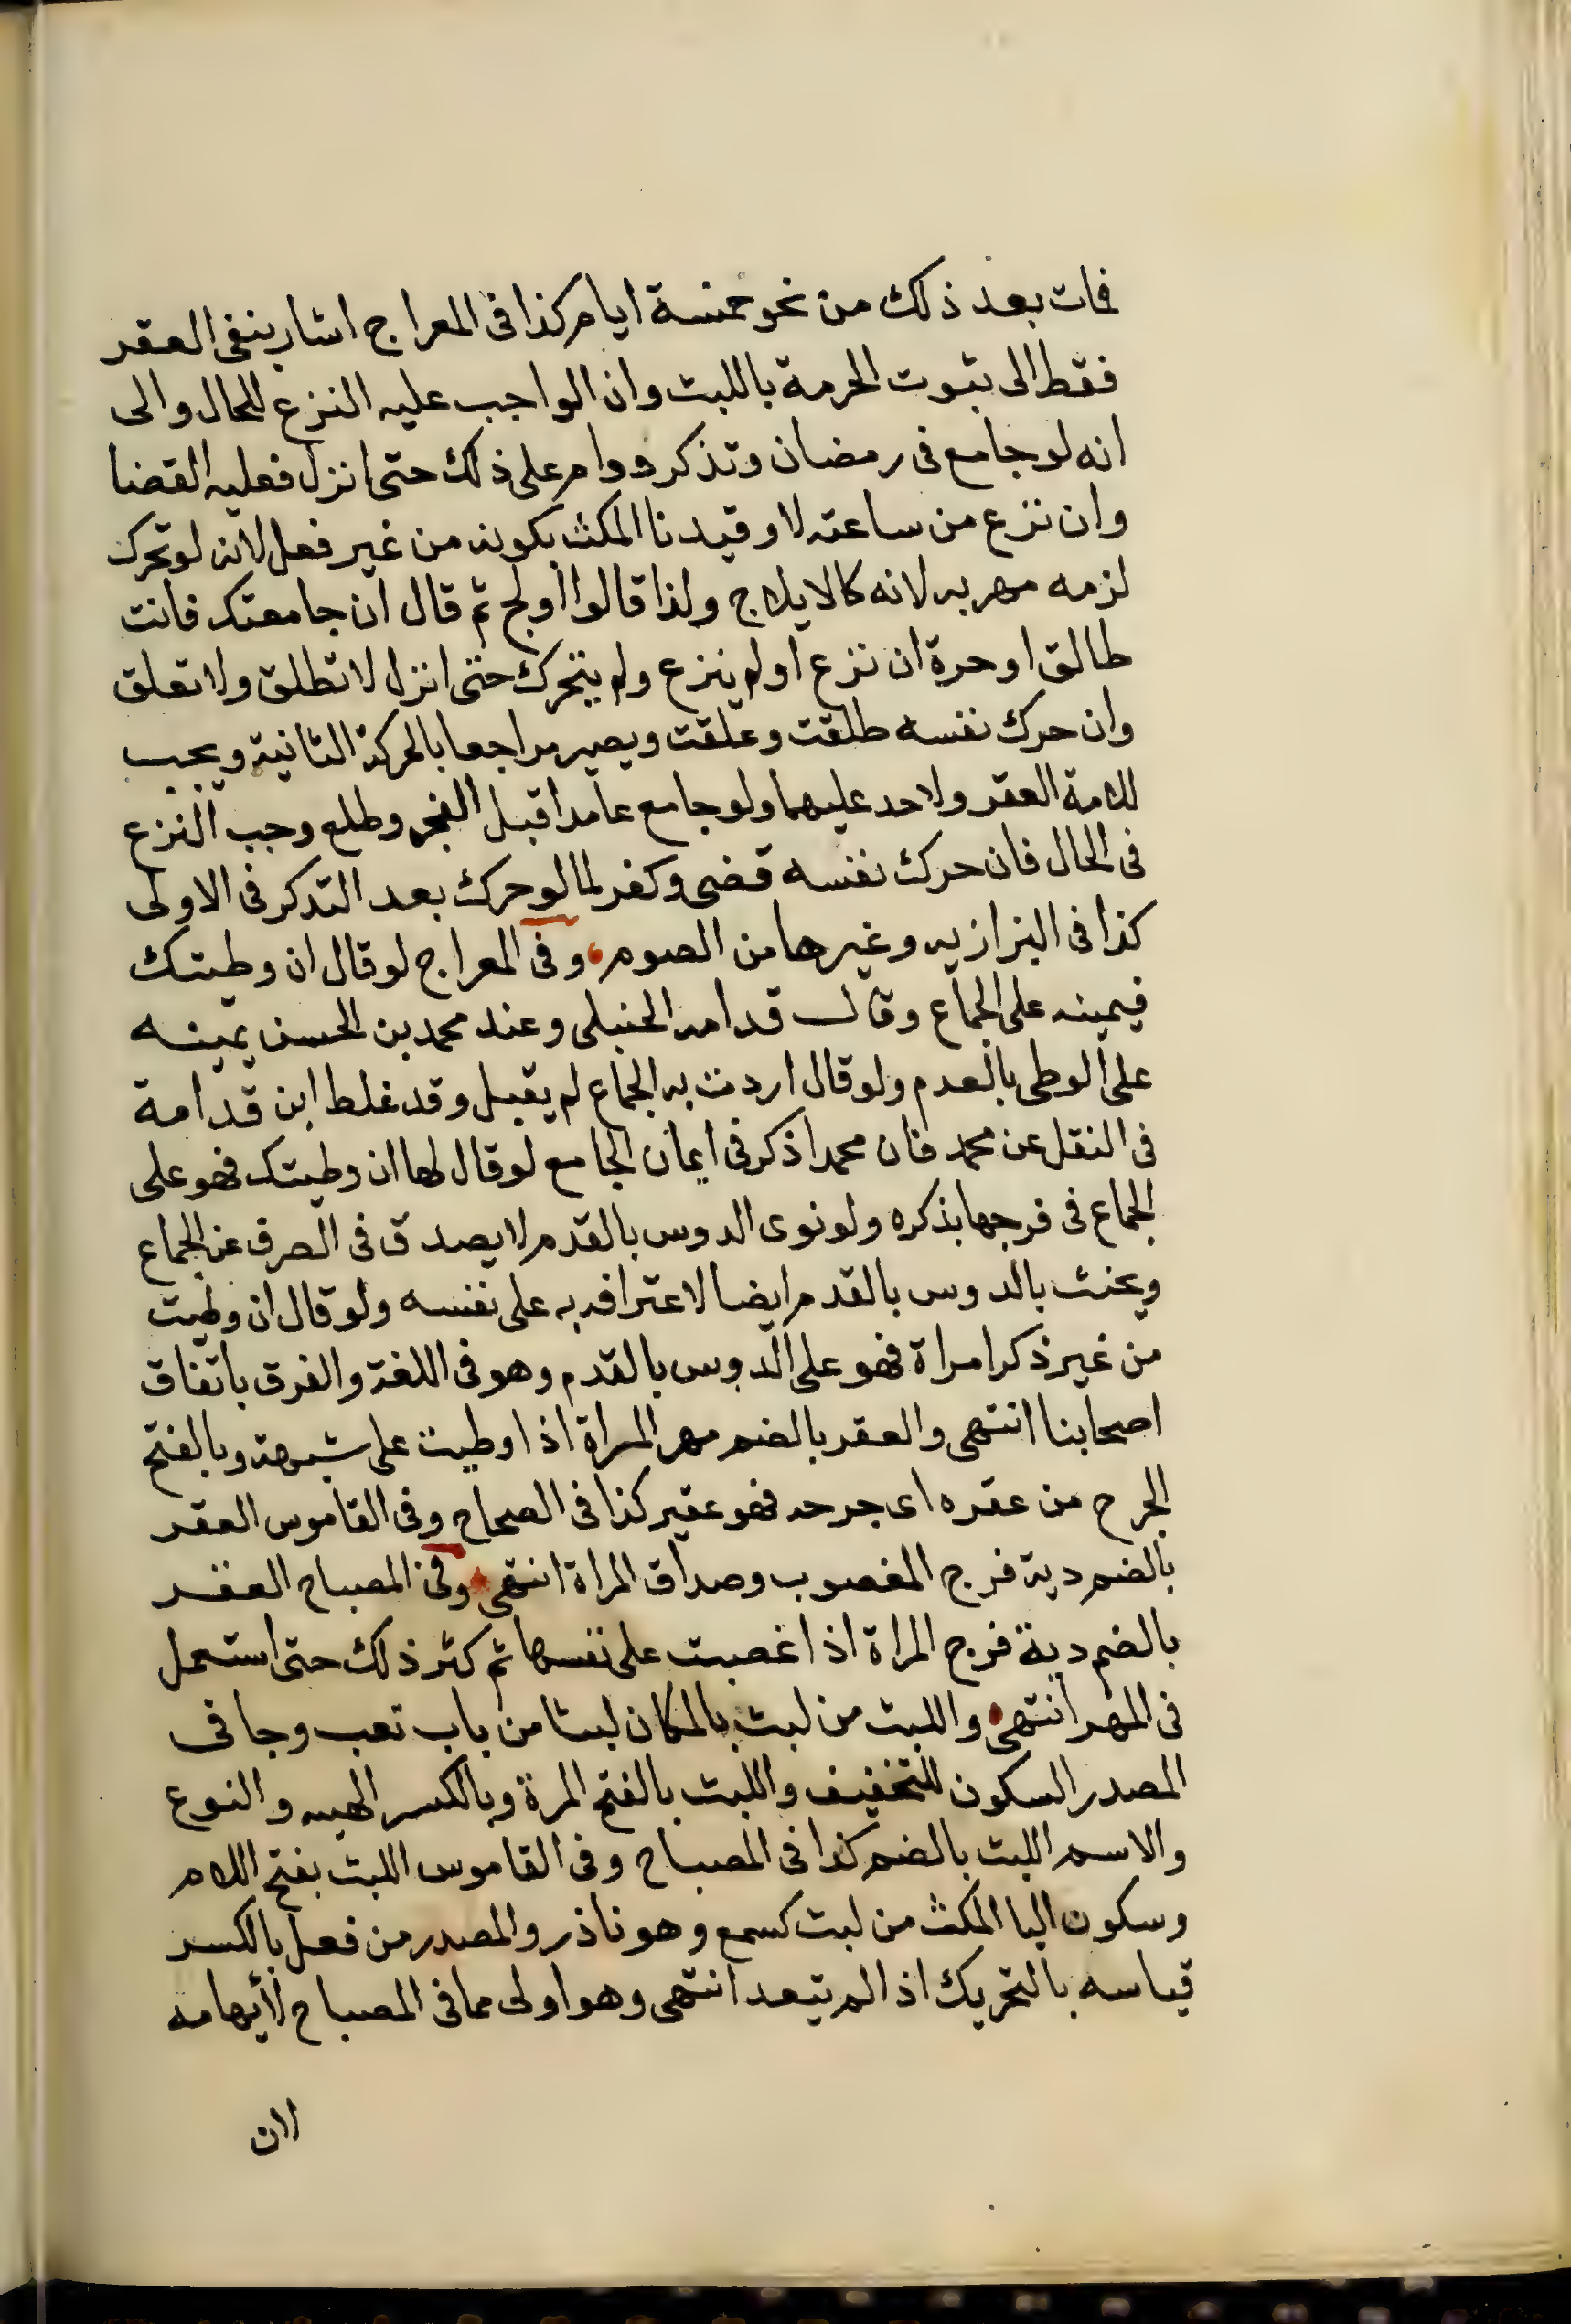 فمات بعد ذلك من نحو خمسة ايام كذا فى المعراج اشار بنفى العقر
فقط الى ثبوت الحرمة باللبث وان الواجب عليه النزع للحال والى
انه لو جامع فى رمضان وتذكر ودام على ذلك حتى انزل فعليه القضا
وان نزع من ساعته لا وقيدنا المكث بكونه من غير فعل لانه لو تحرك
لزمه مهر به لانه كالايلاج ولذا قالوا اولج ثم قال ان جامعتك فانت
طالق او حرة ان نزع او لم ينزع ولم يتحرك حتى انزل لا تطلق ولا تعلق
وان حرك نفسه طلقت وعلقت ويصير مراجعا بالحركة الثانية ويجب
للامة العقر ولا حد عليهما ولو جامع عامدا قبل الفجر وطلع وجب النزع
فى الحال فان حرك نفسه قضى وكفر لما لو حرك بعد التذكر فى الاولى
كذا فى البزازيه وغيرها من الصوم وفى المعراج لو قال ان وطيتك
فيمينه على الجماع وقال قدامه الحنبلى وعند محمد بن الحسن يمينه
على الوطى بالعدم ولو قال اردت به الجماع لم يقبل وقد غلط ابن قدامة
فى النقل عن محمد فان محمدا ذكر فى ايمان الجامع لو قال لها ان وطيتك فهو على
الجماع فى فرجها بذكره ولو نوى الدوس بالقدم لا يصدق فى الصرف عن الجماع
ويحنث بالدوس بالقدم ايضا لاعترافه به على نفسه ولو قال ان وطيت
من غير ذكر امراة فهو على الدوس بالقدم وهو فى اللغة والفرق باتفاق
اصحابنا انتهى والعقر بالضم مهر المراة اذا وطيت على شبهة وبالفتح
الجرح من عقره اى جرحه فهو عقير كذا فى الصحاح وفى القاموس العقر
بالضم دية فرج المغصوب وصداق المراة انتهى وفى المصباح العقر
بالضم دية فرج المراة اذا غصبت على نفسها ثم كثر ذلك حتى استعمل
فى المهر انتهى واللبث من لبث بالمكان لبثا من باب تعب وجا فى
المصدر السكون للتخفيف واللبث بالفتح المرة وبالكسر الهيه والنوع
والاسم اللبث بالضم كذا فى المصباح وفى القاموس اللبث بفتح اللام
وسكون البا المكث من لبث كسمع وهو ناذر والمصدر من فعل بالكسر
قياسه بالتحريك اذا لم يتعد انتهى وهو اولى مما فى المصباح لأيهامه
لان